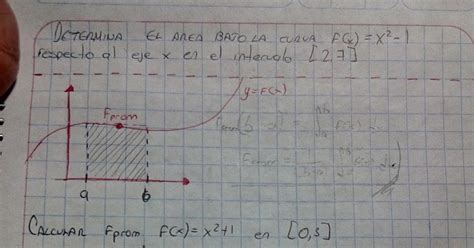 DETERMINA EL AREA BAJO LA CURVA F(x)=x²-1
respecto al eje x en el intervalo [2,7]
y=F(x)
Fprom
a b
CALCULAR Fprom F(x)=x²+1 en [0,3]